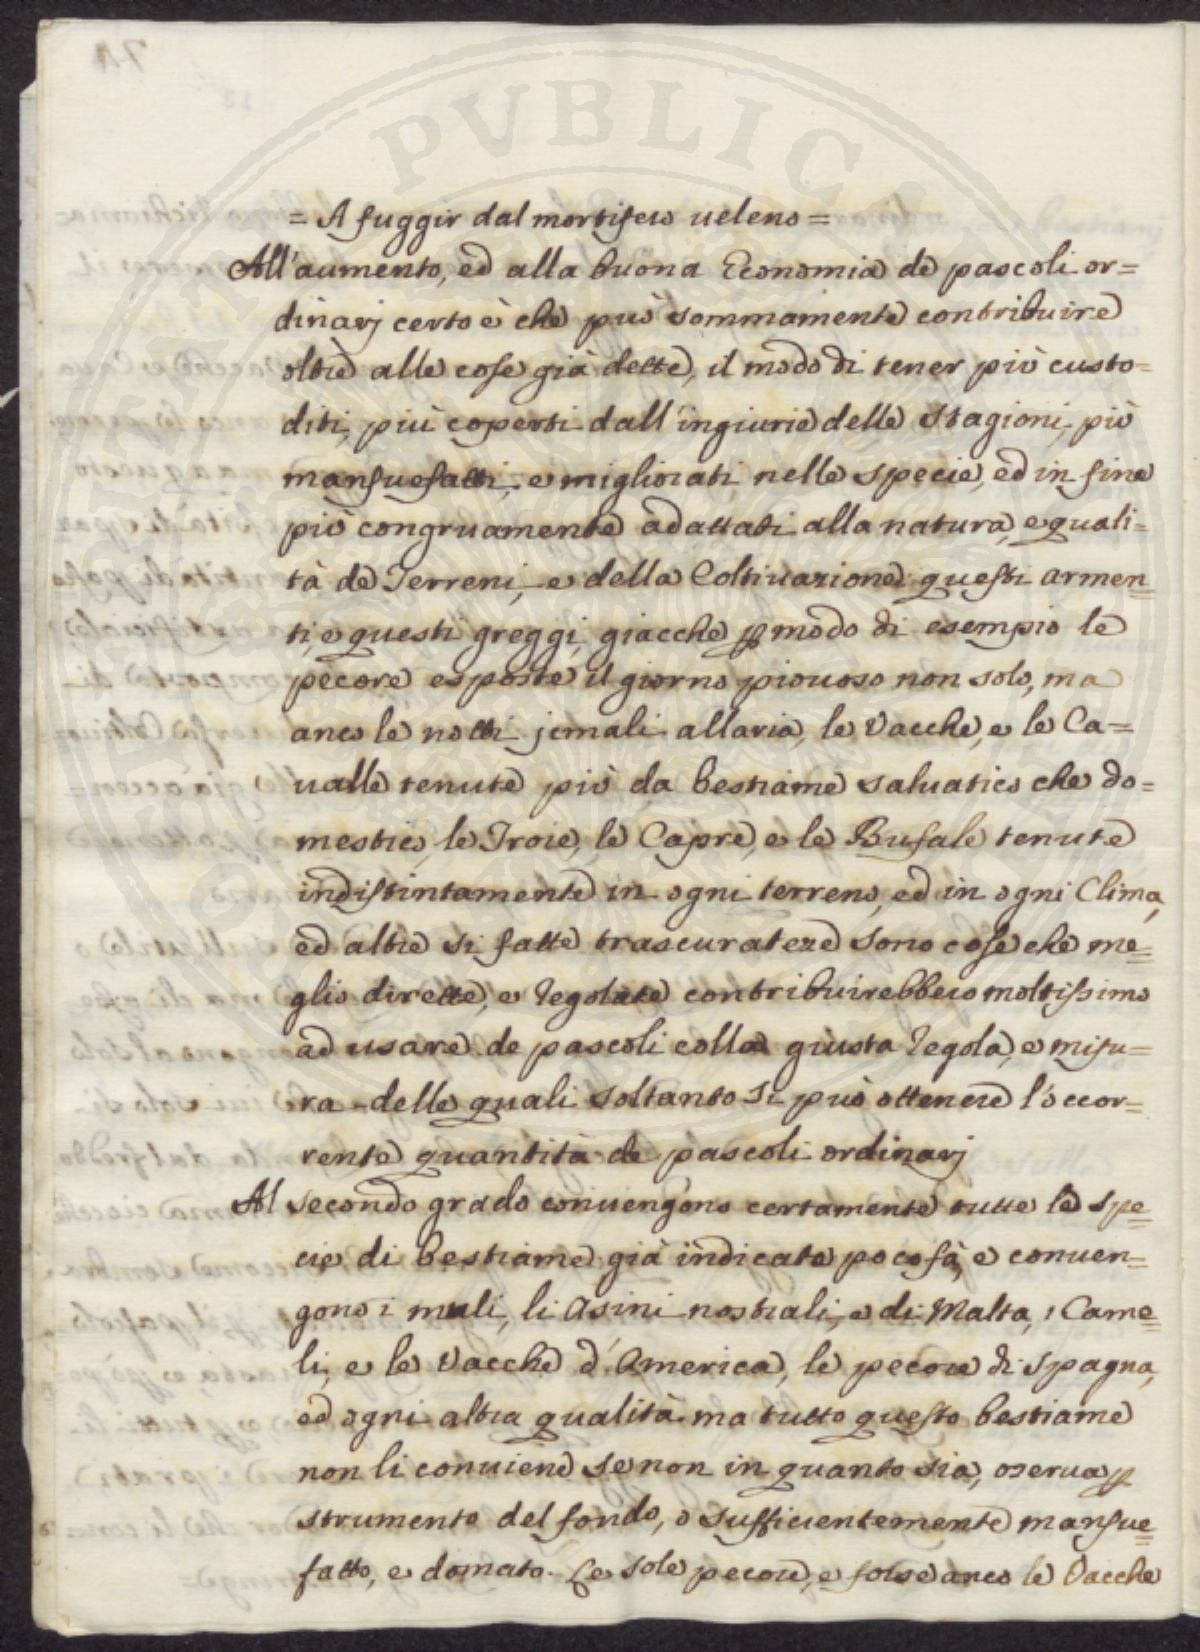 = A fuggir dal mortifero ueleno =
All'aumento, ed alla buona Economia de pascoli or=
dinarj certo è che può sommamente contribuire
oltre alle cose già dette, il modo di tener più custo=
diti, più coperti dall'ingiurie delle Stagioni, più
mansuefatti, e migliorati nelle specie, ed in fine
più congruamente adattati alla natura, e quali=
tà de Terreni, e della Coltiuazione questi armen=
ti, e questi greggi, giacche p modo di esempio le
pecore esposte il giorno piouoso non solo, ma
anco le notti jemali all aria, le Vacche, e le Ca=
ualle tenute più da bestiame saluatico che do=
mestico, le Troie, le Capre, e le Bufale tenute
indistintamente in ogni terreno, ed in ogni Clima,
ed altre si fatte trascurateze sono cose che me=
glio dirette, e regolate contribuirebbero moltissimo
ad usare de pascoli colla giusta regola, e misu=
ra delle quali soltanto si può ottenere l'occor=
rente quantità de pascoli ordinarj
Al secondo grado conuengono certamente tutte le spe=
cie di bestiame già indicate poco fà, e conuen=
gono i muli, li asini nostrali, e di Malta, i Came=
li, e le Vacche d'America, le pecore di Spagna,
ed ogni altra qualità ma tutto questo bestiame
non li conuiene se non in quanto sia, o serua p
strumento del fondo, o sufficientemente mansue=
fatto, e domato. Le sole pecore, e forse anco le Vacche